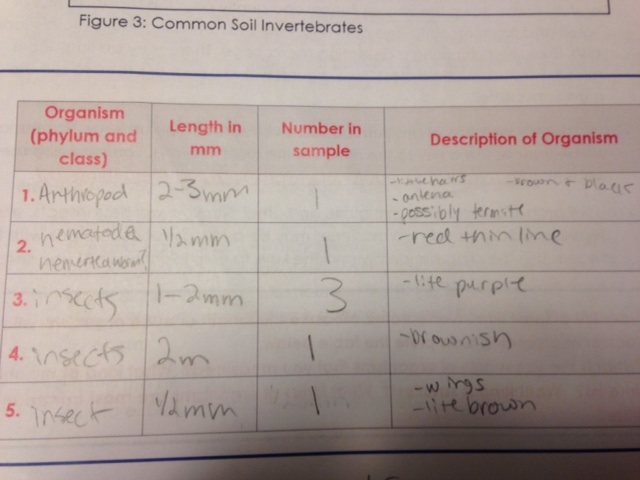 Figure 3: Common Soil Invertebrates
Organism (phylum and class) Length in mm Number in sample Description of Organism
1. Arthropod 2-3mm 1 hairs -brown + black
-antena
-possibly termite
2. nematoda 1/2mm 1 -red thin line
nemertea worm?
3. insects 1-2mm 3 -lite purple
4. insects 2m 1 -brownish
5. insect 1/2mm 1 -wings
-lite brown